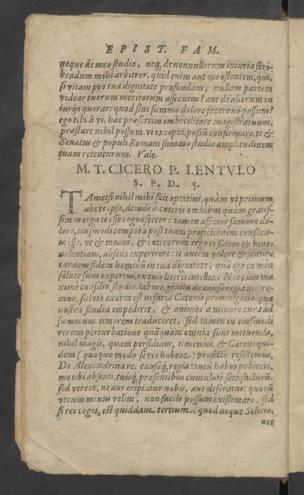 EPIST. FAM.
neque de meo studio, neq; de nonnullorum iniuria scri-
bendum mihi arbitror, quid enim aut me ostentem, qui,
si vitam pro tua dignitate profundam, nullam partem
videar tuorum meritorum assecutus? aut de aliorum in
iurijs querar: quod sine summo dolore facere nõ possum?
ego tibi à vi, hac præsertim imbecillitate magistratuum,
præstare nihil possum. vi excepta, possũ confirmare, te &
Senatus & populi Romani summo studio amplitudinem
tuam retenturum. Vale.
M. T. CICERO P. LENTVLO
S. P. D. 5.
TAmetsi nihil mihi fuit optatius, quàm vt primum
abs te ipso, deinde à cæteris omnibus quam gratis-
simus erga te esse cognoscerer: tamen afficior summo do-
lore, eiusmodi tempora post tuam profectionem consecu-
ta esse, vt & meam, & cæterorum erga te fidem & bene-
uolentiam, absens experirere: te autem videre & sentire
eandem fidem hominũ in tua dignitate, quã ego in mea
salute sum expertus, ex tuis literis intellexi. Nos cum ma
ximè consilio, studio, labore, gratia de causa regia nite-
remur, subitò exorta est nefaria Catonis promulgatio, quæ
nostra studia impediret, & animos à minore cura ad
summum timorem traduceret, sed tamen in eiusmodi
rerum perturbatione quãquam omnia sunt metuenda,
nihil magis, quam perfidiam, timemus, & Catoni qui-
dem (quoquo modo se res habeat) profectò resistemus.
De Alexandrina re, causaq; regia tantũ habeo polliceri,
me tibi absenti, tuisq; præsentibus cumulatè satisfacturũ.
sed vereor, ne aut eripiatur nobis, aut deseratur: quorũ
vtrum minus velim, non facilè possum existimare. sed
si res coget, est quiddam tertium, quod neque Selicio,
nec